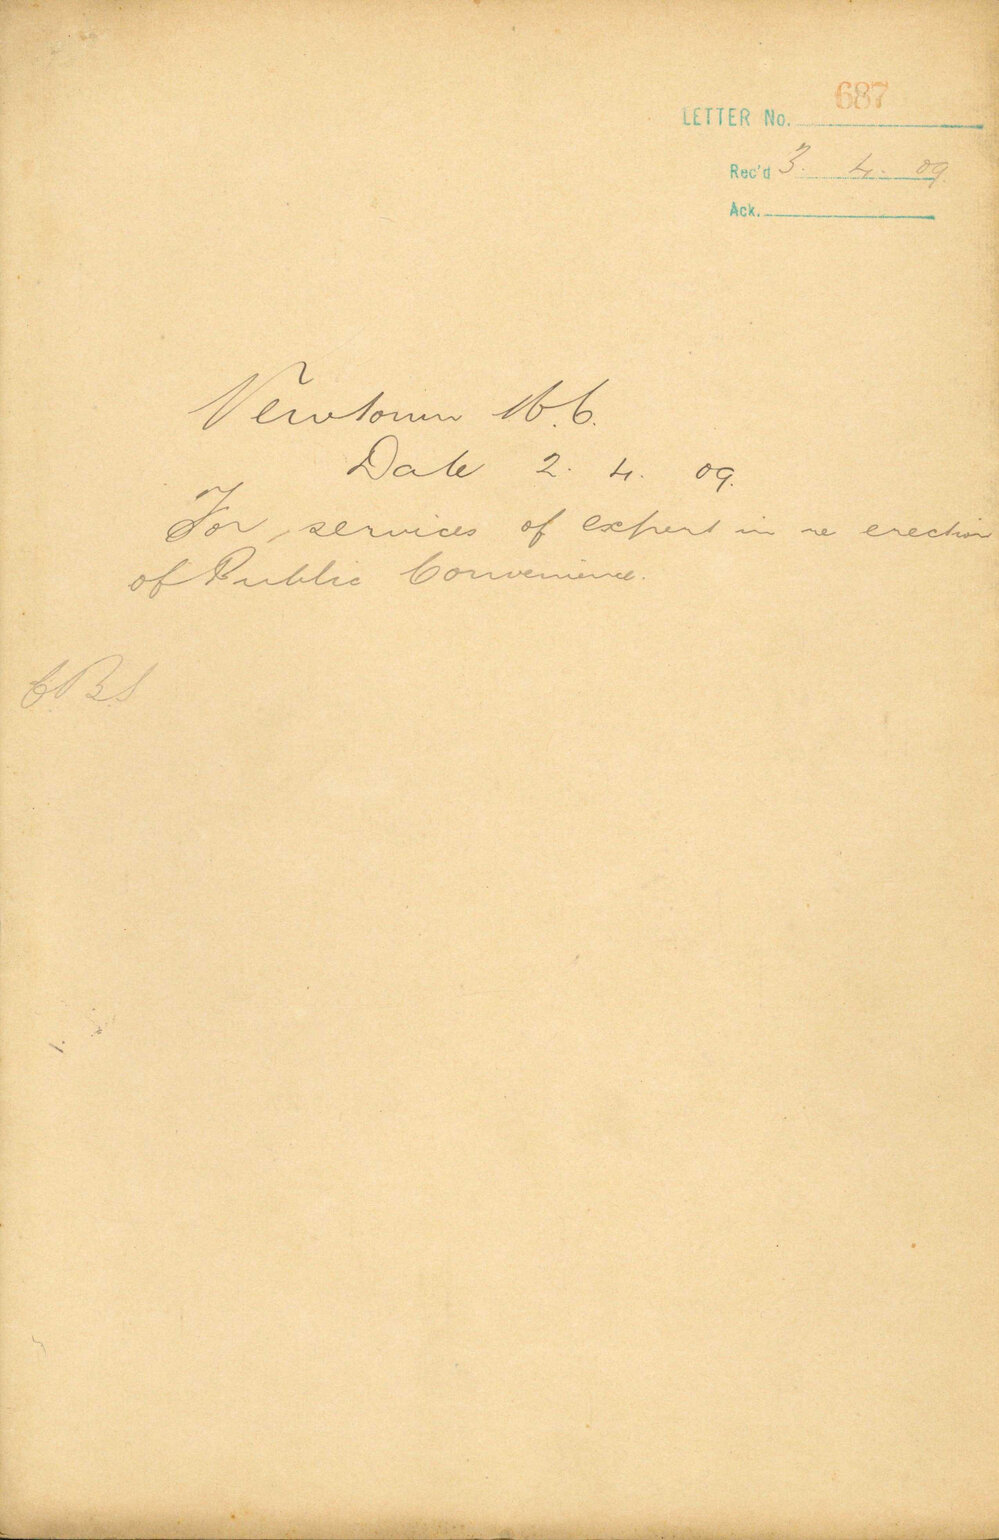 687
LETTER No.
Rec'd 3. 4. 09.
Ack.
Newtown M.C.
Date 2. 4. 09.
For services of expert in re erection
of Public Convenience.
C.B.S